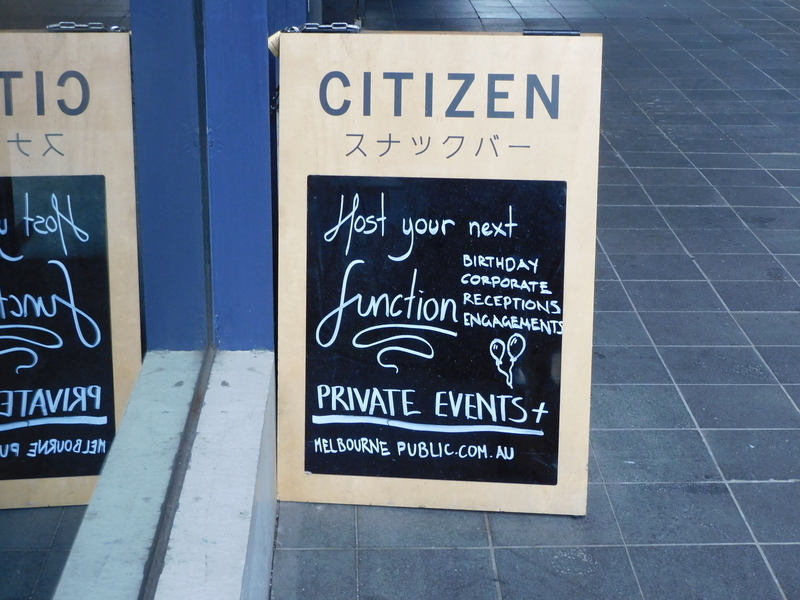 CITIZEN
スナックバー
Host your next
function
BIRTHDAY
CORPORATE
RECEPTIONS
ENGAGEMENTS
PRIVATE EVENTS+
MELBOURNE PUBLIC.COM.AU